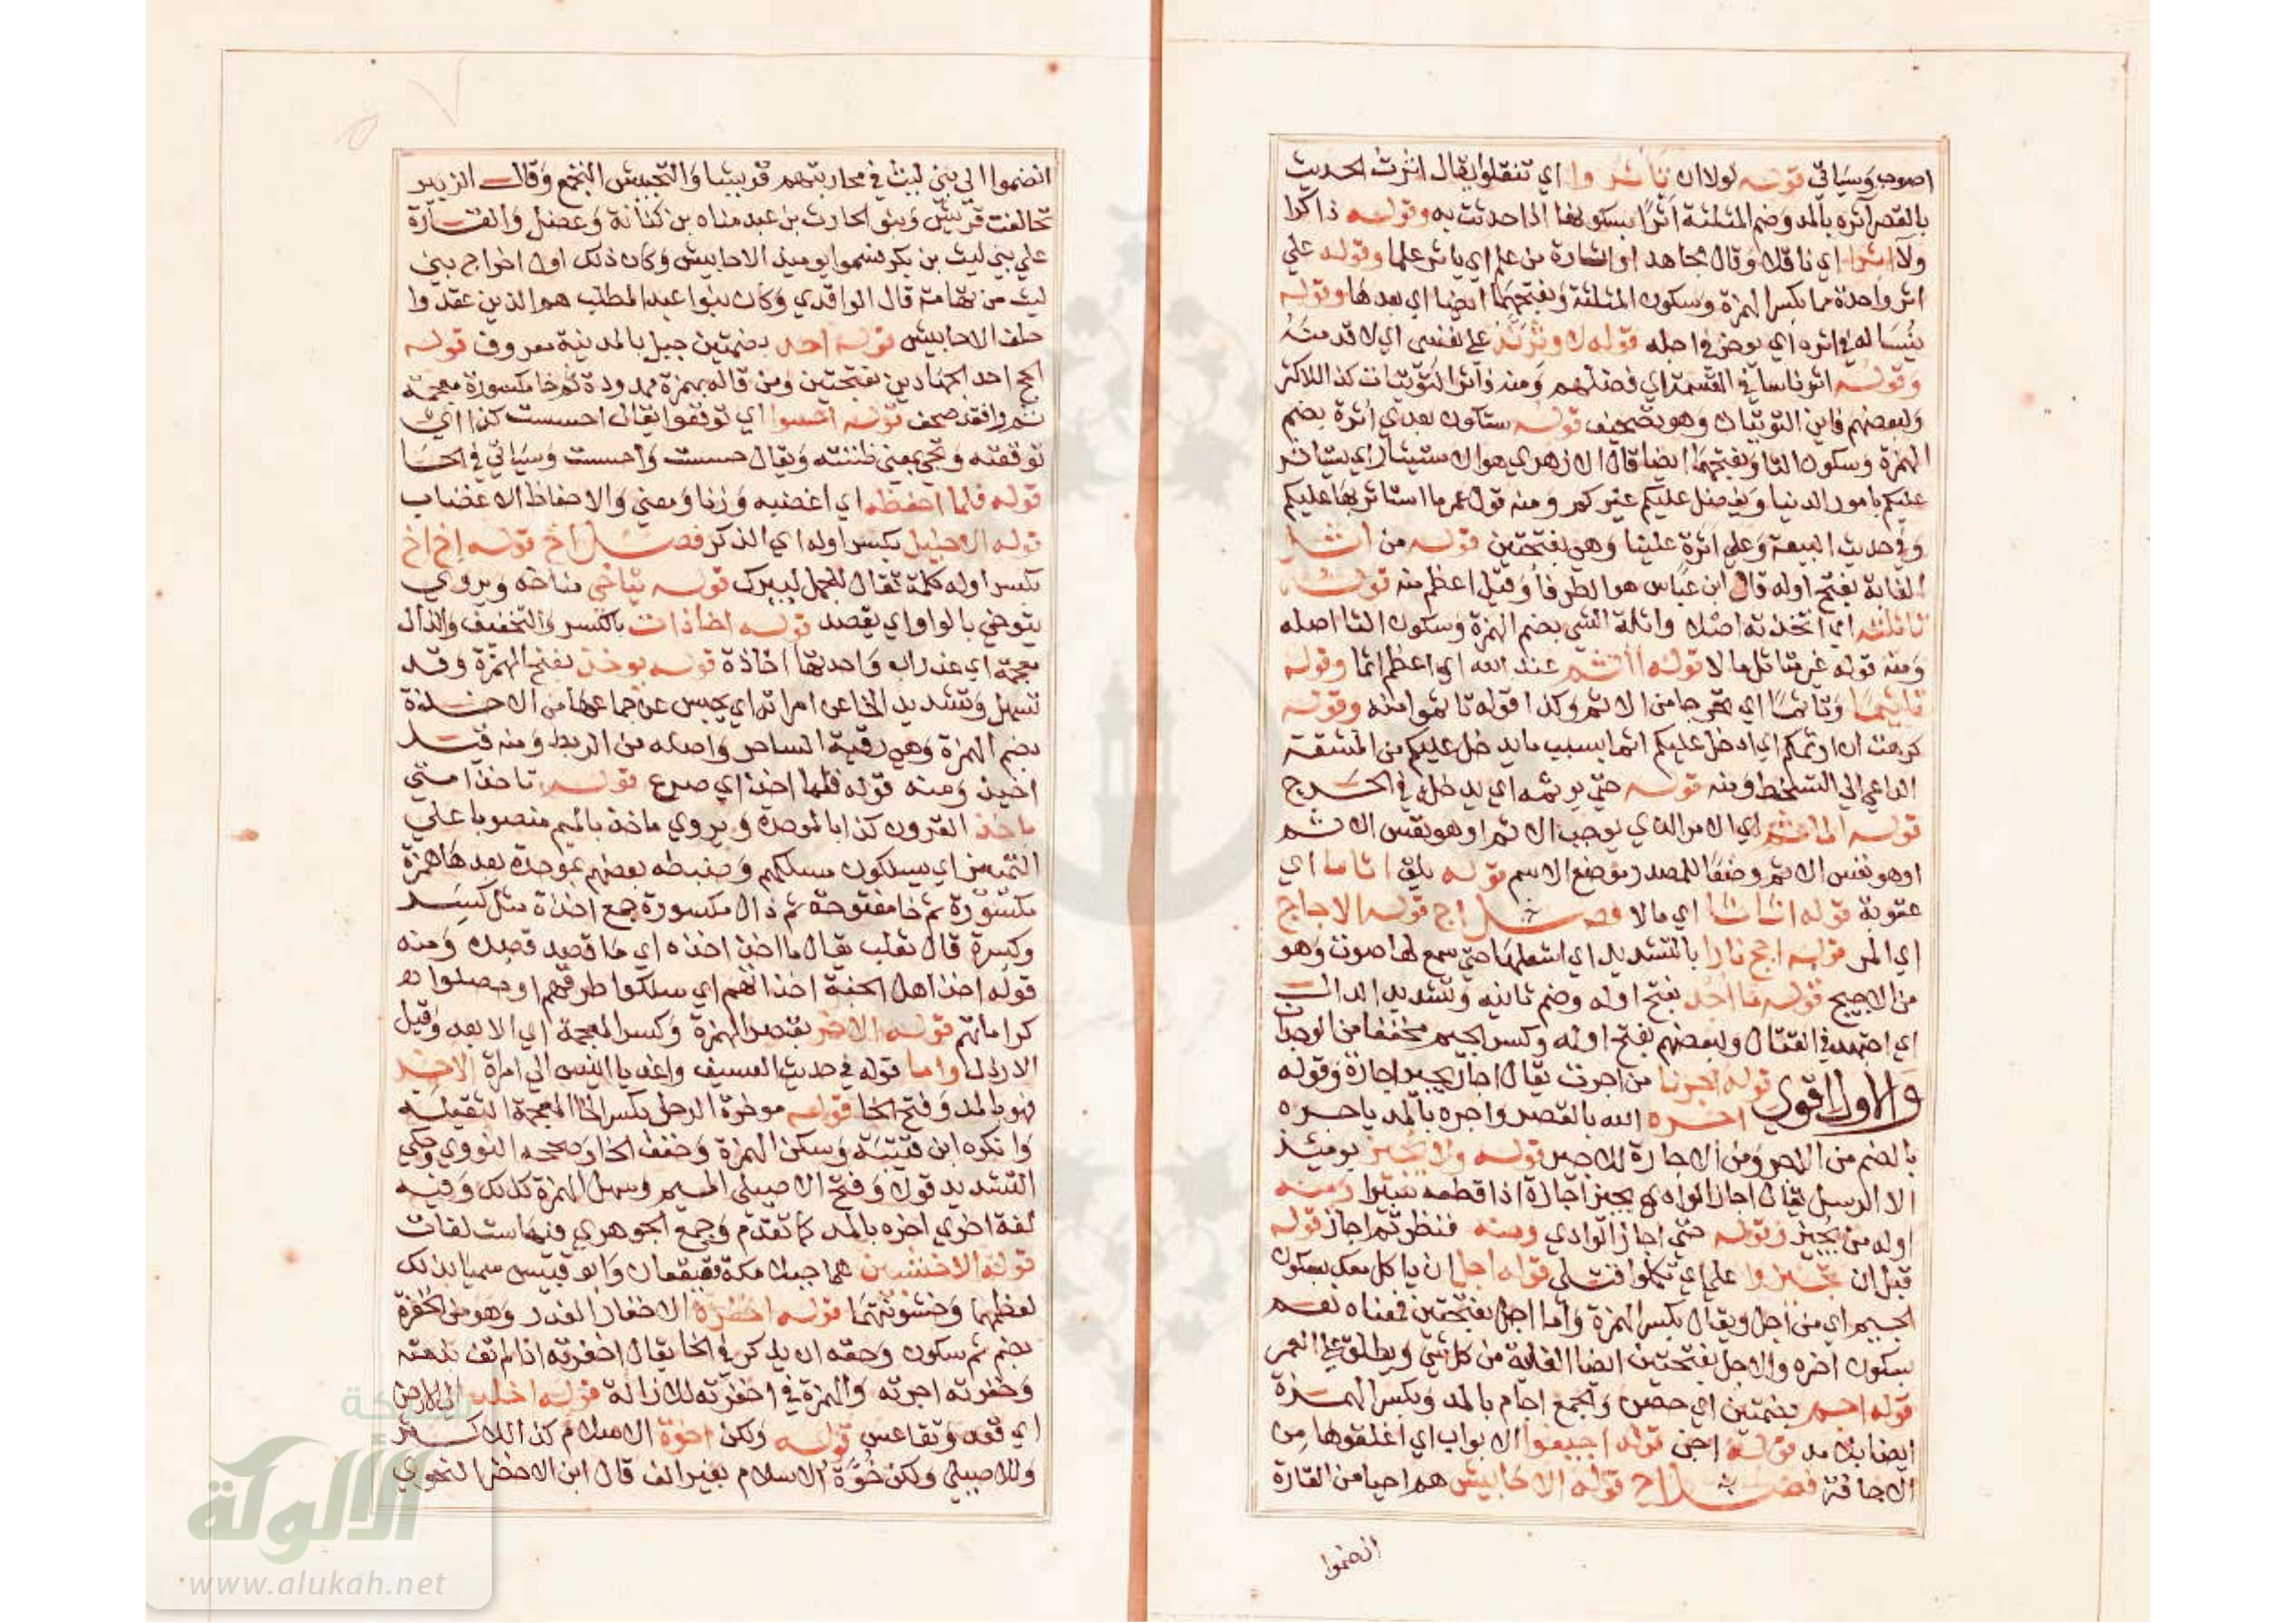 اصوب وسياتي قوله لولا ان تاثروا اي تنقلوا يقال اثرت الحديث
بالقصر آثره بالمد وضم المثلثة اثرا بسكونها اذا حدثت به وقوله ذاكرا
ولا اثرا اي ناقلا وقال مجاهد او اثارة من علم اي ياثر علما وقوله علي
اثر واحدة مما بكسر الهمزة وسكون المثلثة وبفتحهما ايضا اي بعدها وقوله
ينسا له في اثره اي يوخر في اجله قوله لا وثرنه علي نفسي اي لا قدمنه
وقوله اثر ناسا في القسمة اي فضلهم ومنه فآثر التويتات كذا للاكثر
ولبعضهم فاين التويتات وهو تصحيف قوله ستكون بعدي اثرة بضم
الهمزة وسكون الثا وبفتحهما ايضا قال الازهري هو الاستيثار اي يستاثر
عليكم بامور الدنيا ويفضل عليكم غيركم ومنه قول عمر ما استاثر بها عليكم
وفي حديث البيعة وعلي اثرة علينا وهي بفتحتين قوله من اثل
الغابة بفتح اوله قال ابن عباس هو الطرفا وقيل اعظم منه قوله
تاثلته اي اتخذته اصلا واثلة الشي بضم الهمزة وسكون الثا اصله
ومنه قوله غير متاثل مالا قوله آثم عند الله اي اعظم اثما وقوله
تاثيما وتاثما اي تحرجا من الاثم وكذا قوله تاثموا منه وقوله
كرهت ان اوثمكم اي ادخل عليكم اثما بسبب ما يدخل عليكم من المشقة
الداعي الي التسخط ومنه قوله حتي يوثمه اي يدخله في الحرج
قوله الماثم اي الامر الذي يوجب الاثم او هو نفس الاثم
او هو نفس الاثم وضعا للمصدر موضع الاسم قوله يلق اثاما اي
عقوبة قوله اثاثا اي مالا فصل اج قوله الاجاج
اي المر قوله اجج نارا بالتشديد اي اشعلها حتي سمع لها صوت وهو
من الاجيج قوله ما اجد بفتح اوله وضم ثانيه وتشديد الدال
اي اجتهد في القتال ولبعضهم بفتح اوله وكسر الجيم مخففا من الوجدان
والاول اقوي قوله اجرنا من اجرت يقال اجار يجير اجارة وقوله
اجره الله بالقصر واجره بالمد ياجره
بالضم من الاجر ومن الاجارة للاجير قوله ولا يجيز يوميذ
الا الرسل يقال اجاز الوادي يجيز اجازة اذا قطعه سيرا ومنه
اوله من يجيز وقوله حتي اجاز الوادي ومنه فنظر ثم اجاز قوله
قبل ان تجيزوا علي اي تكملوا قتلي قوله اجل ان ياكل معك بسكون
الجيم اي من اجل ويقال بكسر الهمزة واما اجل بفتحتين فمعناه نعم
بسكون اخره والاجل بفتحتين ايضا الغاية من كل شي ويطلق علي العمر
قوله اجم بضمتين اي حصن والجمع اجام بالمد وبكسر الهمزة
ايضا بلا مد قوله اجن قوله اجيفوا الابواب اي اغلقوها من
الاجافة فصل اح قوله الاحابيش هم احيا من القارة
انضموا
انضموا الي بني ليث في محاربتهم قريشا والتحبيش التجمع وقال الزبير
تحالفت قريش وبنو الحارث بن عبد مناه بن كنانة وعضل والقارة
علي بني ليث بن بكر فسموا يوميذ الاحابيش وكان ذلك اول اخراج بني
ليث من تهامة قال الواقدي وكان بنوا عبد المطلب هم الذين عقدوا
حلف الاحابيش قوله احد بضمتين جبل بالمدينة معروف قوله
الحج احد الجهادين بفتحتين ومن قاله بهمزة ممدودة ثم خا مكسورة معجمة
ثم را فقد صحف قوله احسبوا اي توقفوا يقال احسست كذا اي
توقفته وتجي بمعني ظننته ويقال حسست واحسست وسياتي في الحا
قوله فلما احفظه اي اغضبه وزنا ومعني والاحفاظ الاغضاب
قوله الاحليل بكسر اوله اي الذكر فصل اخ قوله اخ اخ
بكسر اوله كلمة تقال للجمل ليبرك قوله يتاخي مناخه ويروي
يتوخي بالواو اي يقصد قوله اخاذات بالكسر والتخفيف والذال
معجمة اي غدران واحدتها اخاذة قوله يوخذ بفتح الهمزة وقد
تسهل وتشديد الخا عن امراته اي يحبس عن جماعها من الاخذة
بضم الهمزة وهي رقية الساحر واصله من الربط ومنه قيل
اخيذ ومنه قوله فلما اخذ اي صرع قوله تاخذ امتي
باخذ القرون كذا بالموحدة ويروي ماخذ بالميم منصوبا علي
التمييز اي يسلكون مسلكهم وضبطه بعضهم بموحدة بعدها همزة
مكسورة ثم خا مفتوحة ثم ذال مكسورة جمع اخذة مثل كسر
وكسرة قال ثعلب يقال ما اخذ اخذه اي ما قصد قصده ومنه
قوله اخذ اهل الجنة اخذاتهم اي سلكوا طرقهم او حصلوا
كراماتهم قوله الاخر بقصر الهمزة وكسر المعجمة اي الابعد وقيل
الارذل واما قوله في حديث العسيف واغد يا انيس الي امراة الاخر
فهو بالمد وفتح الخا قوله موخرة الرحل بكسر الخا المعجمة الثقيلة
وانكره ابن قتيبة وسكن الهمزة وخفف الخا وصححه النووي وحكي
التشديد قولا وفتح الاصيلي الميم وسهل الهمزة كذلك وفيه
لغة اخري اخره بالمد كما تقدم وجمع الجوهري فيها ست لغات
قوله الاخشبين هما جبلا مكة قعيقعان وابو قبيس سميا بذلك
لعظمهما وخشونتهما قوله اخفره الاخفار الغدر وهو من الخفرة
بضم ثم سكون وحقه ان يذكر في الخا يقال اخفرته اذا لم تف بذمته
وخفرته اجرته والهمزة في اخفرته للازالة قوله اخلد الي الارض
اي قعد وتقاعس قوله ولكن اخوة الاسلام كذا للاكثر
وللاصيلي ولكن خوة الاسلام بغير الف قال ابن الاخضر النحوي
شبكة
الألوكة
www.alukah.net